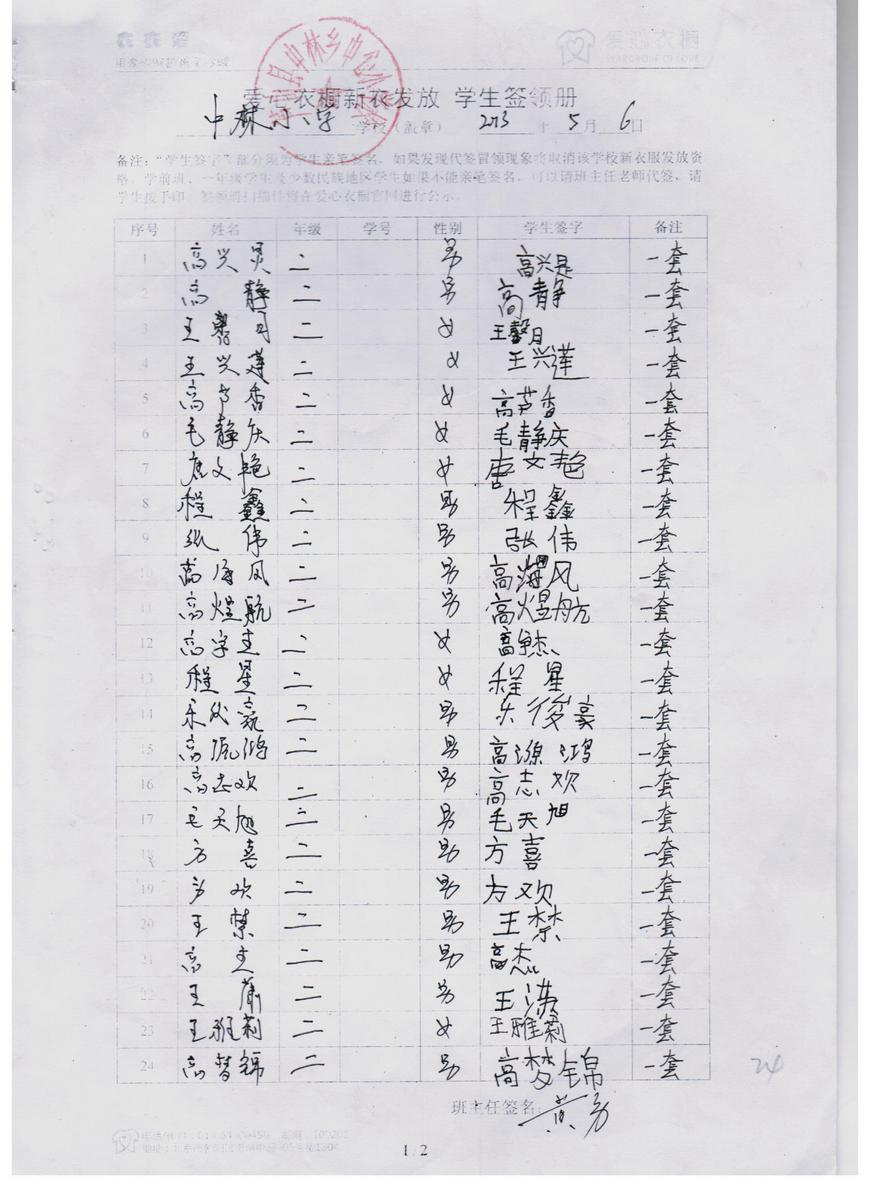 爱心衣橱
爱心衣橱新衣发放 学生签领册
中林小学 学校（盖章） 2013 年 5 月 6 日
备注：“学生签字”部分须为学生亲笔签名，如果发现代签冒领现象将取消该学校新衣服发放资
格。学前班、一年级学生及少数民族地区学生如果不能亲笔签名，可以请班主任老师代签。请
学生按手印。签领册扫描件将在爱心衣橱官网进行公示。
序号 姓名 年级 学号 性别 学生签字 备注
1 高兴 二 男 高兴是 一套
2 高静 二 男 高静 一套
3 王馨 二 女 王馨月 一套
4 王兴莲 二 女 王兴莲 一套
5 高芦香 二 女 高芦香 一套
6 毛静庆 二 女 毛静庆 一套
7 唐文艳 二 女 唐文艳 一套
8 程鑫 二 男 程鑫 一套
9 张伟 二 男 张伟 一套
10 高 风 二 男 高海风 一套
11 高煜航 二 男 高煜航 一套
12 高 二 女 高 杰 一套
13 程星 二 女 程星 一套
14 二 男 俊豪 一套
15 高源鸿 二 男 高源鸿 一套
16 高志欢 二 男 高志欢 一套
17 毛天旭 二 男 毛天旭 一套
18 方喜 二 男 方喜 一套
19 方欢 二 男 方欢 一套
20 王禁 二 男 王禁 一套
21 高杰 二 男 高杰 一套
22 王 二 男 王 一套
23 王雅莉 二 女 王雅莉 一套
24 高梦锦 二 男 高梦锦 一套
24
班主任签名： 黄勇
1 / 2